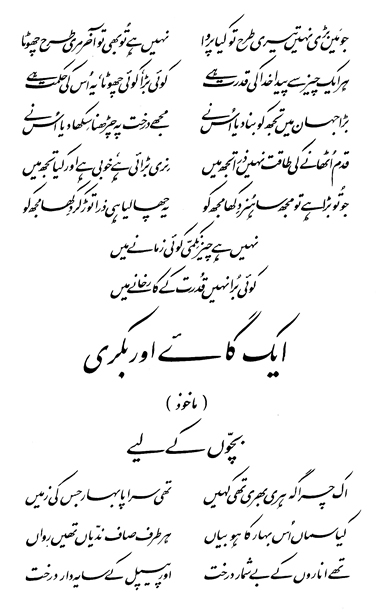 جو میں بڑی نہیں تیری طرح تو کیا پروا نہیں ہے تُو بھی تو آخر مری طرح چھوٹا
ہر ایک چیز سے پیدا خدا کی قدرت ہے کوئی بڑا کوئی چھوٹا، یہ اُس کی حکمت ہے
بڑا جہان میں تجھ کو بنا دیا اُس نے مجھے درخت پہ چڑھنا سکھا دیا اُس نے
قدم اُٹھانے کی طاقت نہیں ذرا تجھ میں نِری بڑائی ہے، خوبی ہے اور کیا تجھ میں
جو تُو بڑا ہے تو مجھ سا ہُنر دکھا مجھ کو یہ چھالیا ہی ذرا توڑ کر دکھا مجھ کو
نہیں ہے چیز نِکمّی کوئی زمانے میں
کوئی بُرا نہیں قُدرت کے کارخانے میں
ایک گائے اور بکری
( ماخوذ )
بچّوں کے لیے
اک چراگہ ہری بھری تھی کہیں تھی سراپا بہار جس کی زمیں
کیا سماں اُس بہار کا ہو بیاں ہر طرف صاف ندّیاں تھیں رواں
تھے اناروں کے بے شمار درخت اور پیپل کے سایہ دار درخت